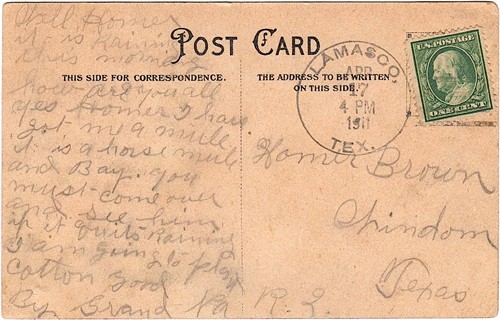 Well Homer
it is Raining
this morning
how are you all
yes Homer I have
got me a mule
it is a horse mule
and Bay. you
must come over
and see him
if it quits Raining
I am going to plant
cotton good
By Grand Pa
POST CARD
THIS SIDE FOR CORRESPONDENCE.
THE ADDRESS TO BE WRITTEN
ON THIS SIDE.
LAMASCO,
APR
17
4 PM
1911
TEX.
U.S. POSTAGE
ONE CENT
Homer Brown
Windom
Texas
R 2